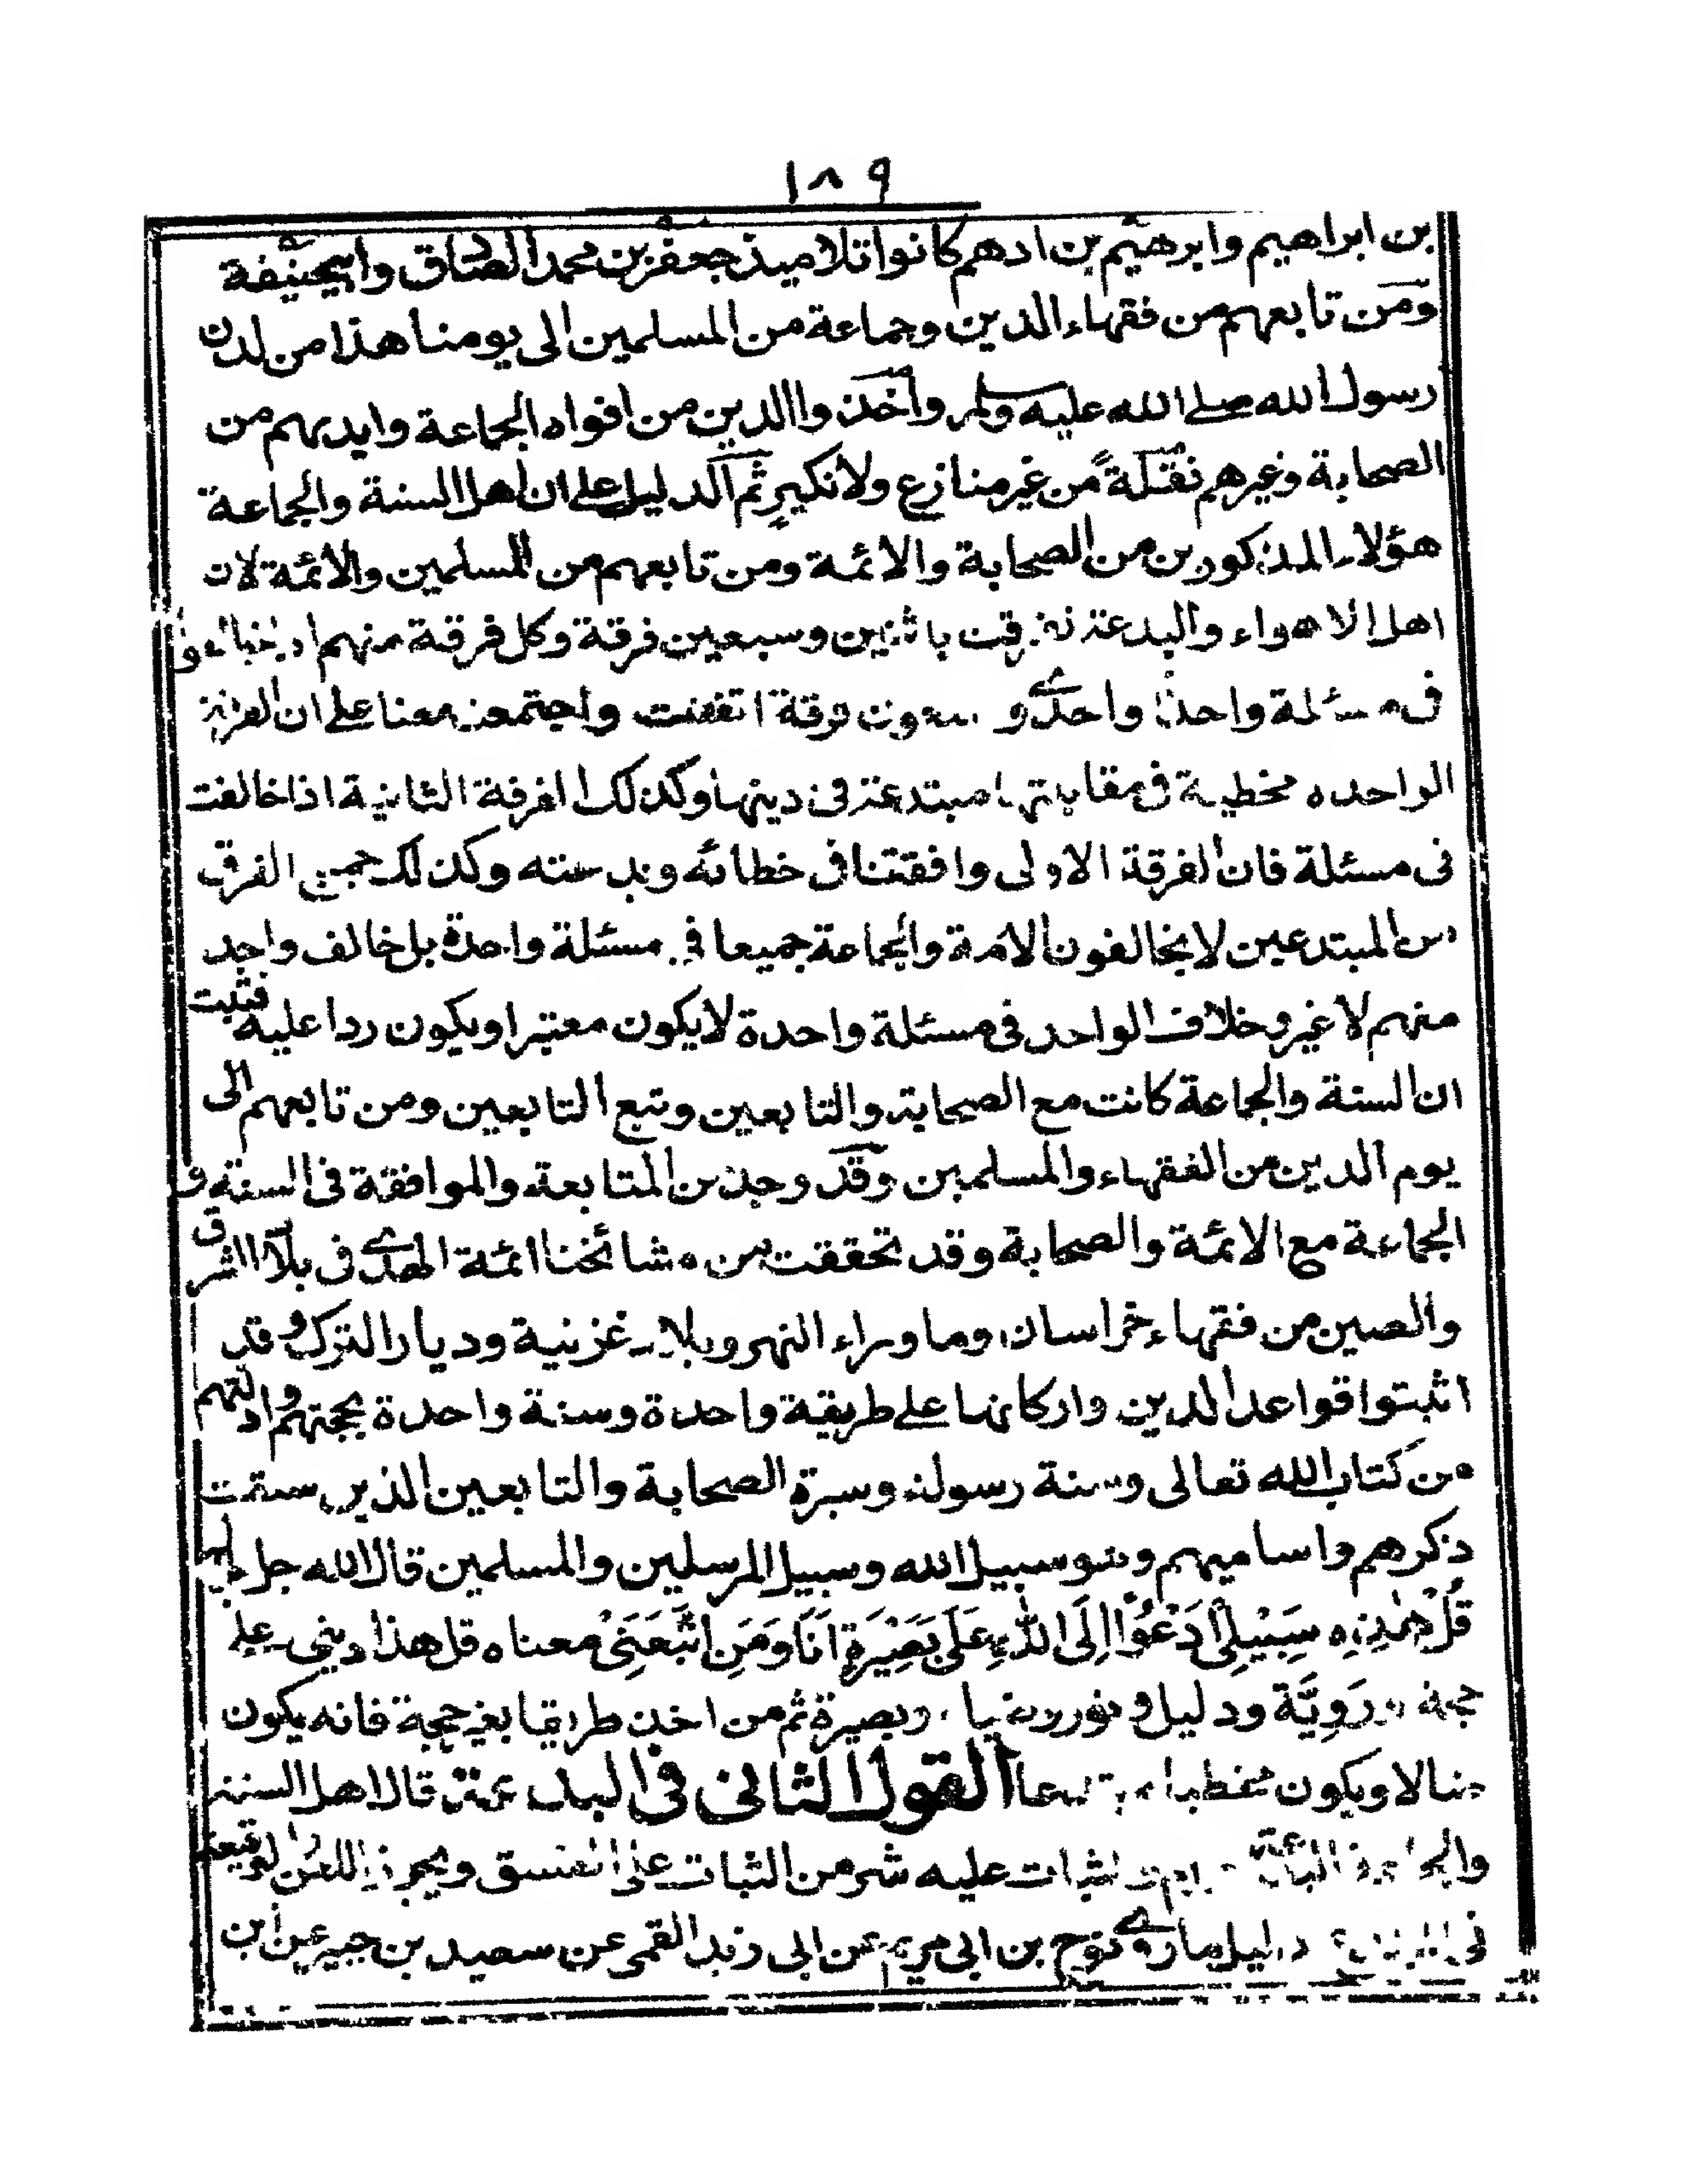 ١٨٩
بن ابراهيم وابرهيم بن ادهم كانوا تلاميذ جعفر بن محمد الصادق وابيحنيفة
ومن تابعهم من فقهاء الدين وجماعة من المسلمين الى يومنا هذا من لدن
رسول الله صلے الله عليه وسلم واخذوا الدين من افواه الجماعة وايديهم من
الصحابة وغيرهم نقلة من غير منازع ولا نكير ثم الدليل علے ان اهل السنة والجماعة
هؤلاء المذكورين من الصحابة والائمة ومن تابعهم من المسلمين والائمة لان
اهل الاهواء والبدعة تفرقت باثنين وسبعين فرقة وكل فرقة منهم
فى مسئلة واحدة واحدے و فرقة اتفقت واجتمعت معنا علے ان الفرقة
الواحده مخطية فى مقابلتها مبتدعة فى دينها وكذلك الفرقة الثانية اذا خالفت
فى مسئلة فان الفرقة الاولى وافقتنا فى خطائه وبدعته وكذلك جميع الفرق
من المبتدعين لا يخالفون الامة والجماعة جميعا فى مسئلة واحدة بل خالف واحد
منهم لا غير وخلاف الواحد فى مسئلة واحدة لا يكون معتبرا ويكون ردا عليه فثبت
ان السنة والجماعة كانت مع الصحابة والتابعين وتبع التابعين ومن تابعهم الى
يوم الدين من الفقهاء والمسلمين وقد وجدنا المتابعة والموافقة فى السنة و
الجماعة مع الائمة والصحابة وقد تحققت من مشائخنا ائمة الهدے فى بلاد الشرق
والصين من فقهاء خراسان وما وراء النهر وبلاد غزنية وديار الترك وقد
اثبتوا قواعد الدين واركانها علے طريقة واحدة وسنة واحدة بحجتهم وادلتهم
من كتاب الله تعالى وسنة رسوله وسيرة الصحابة والتابعين الذين سبقت
ذكرهم واساميهم وهو سبيل الله وسبيل المرسلين والمسلمين قال الله جل جلاله
قُلْ هٰذِهٖ سَبِيْلِىْ اَدْعُوْا اِلَى اللّٰهِ عَلٰى بَصِيْرَةٍ اَنَا وَمَنِ اتَّبَعَنِىْ معناه قل هذا دينى علے
حجة ورَوِيَّة ودليل ونور وبصيرة ثم من اخذ طريقا بغير حجة فانه يكون
ضالا ويكون مخطيا القول الثانى فى البدعة قال اهل السنة
والجماعة الثبات عليه شر من الثبات على الفسق ويجوز اللعن
دليل ما روے نوح بن ابى مريم عن ابى زيد القمى عن سعيد بن جبير عن ابن